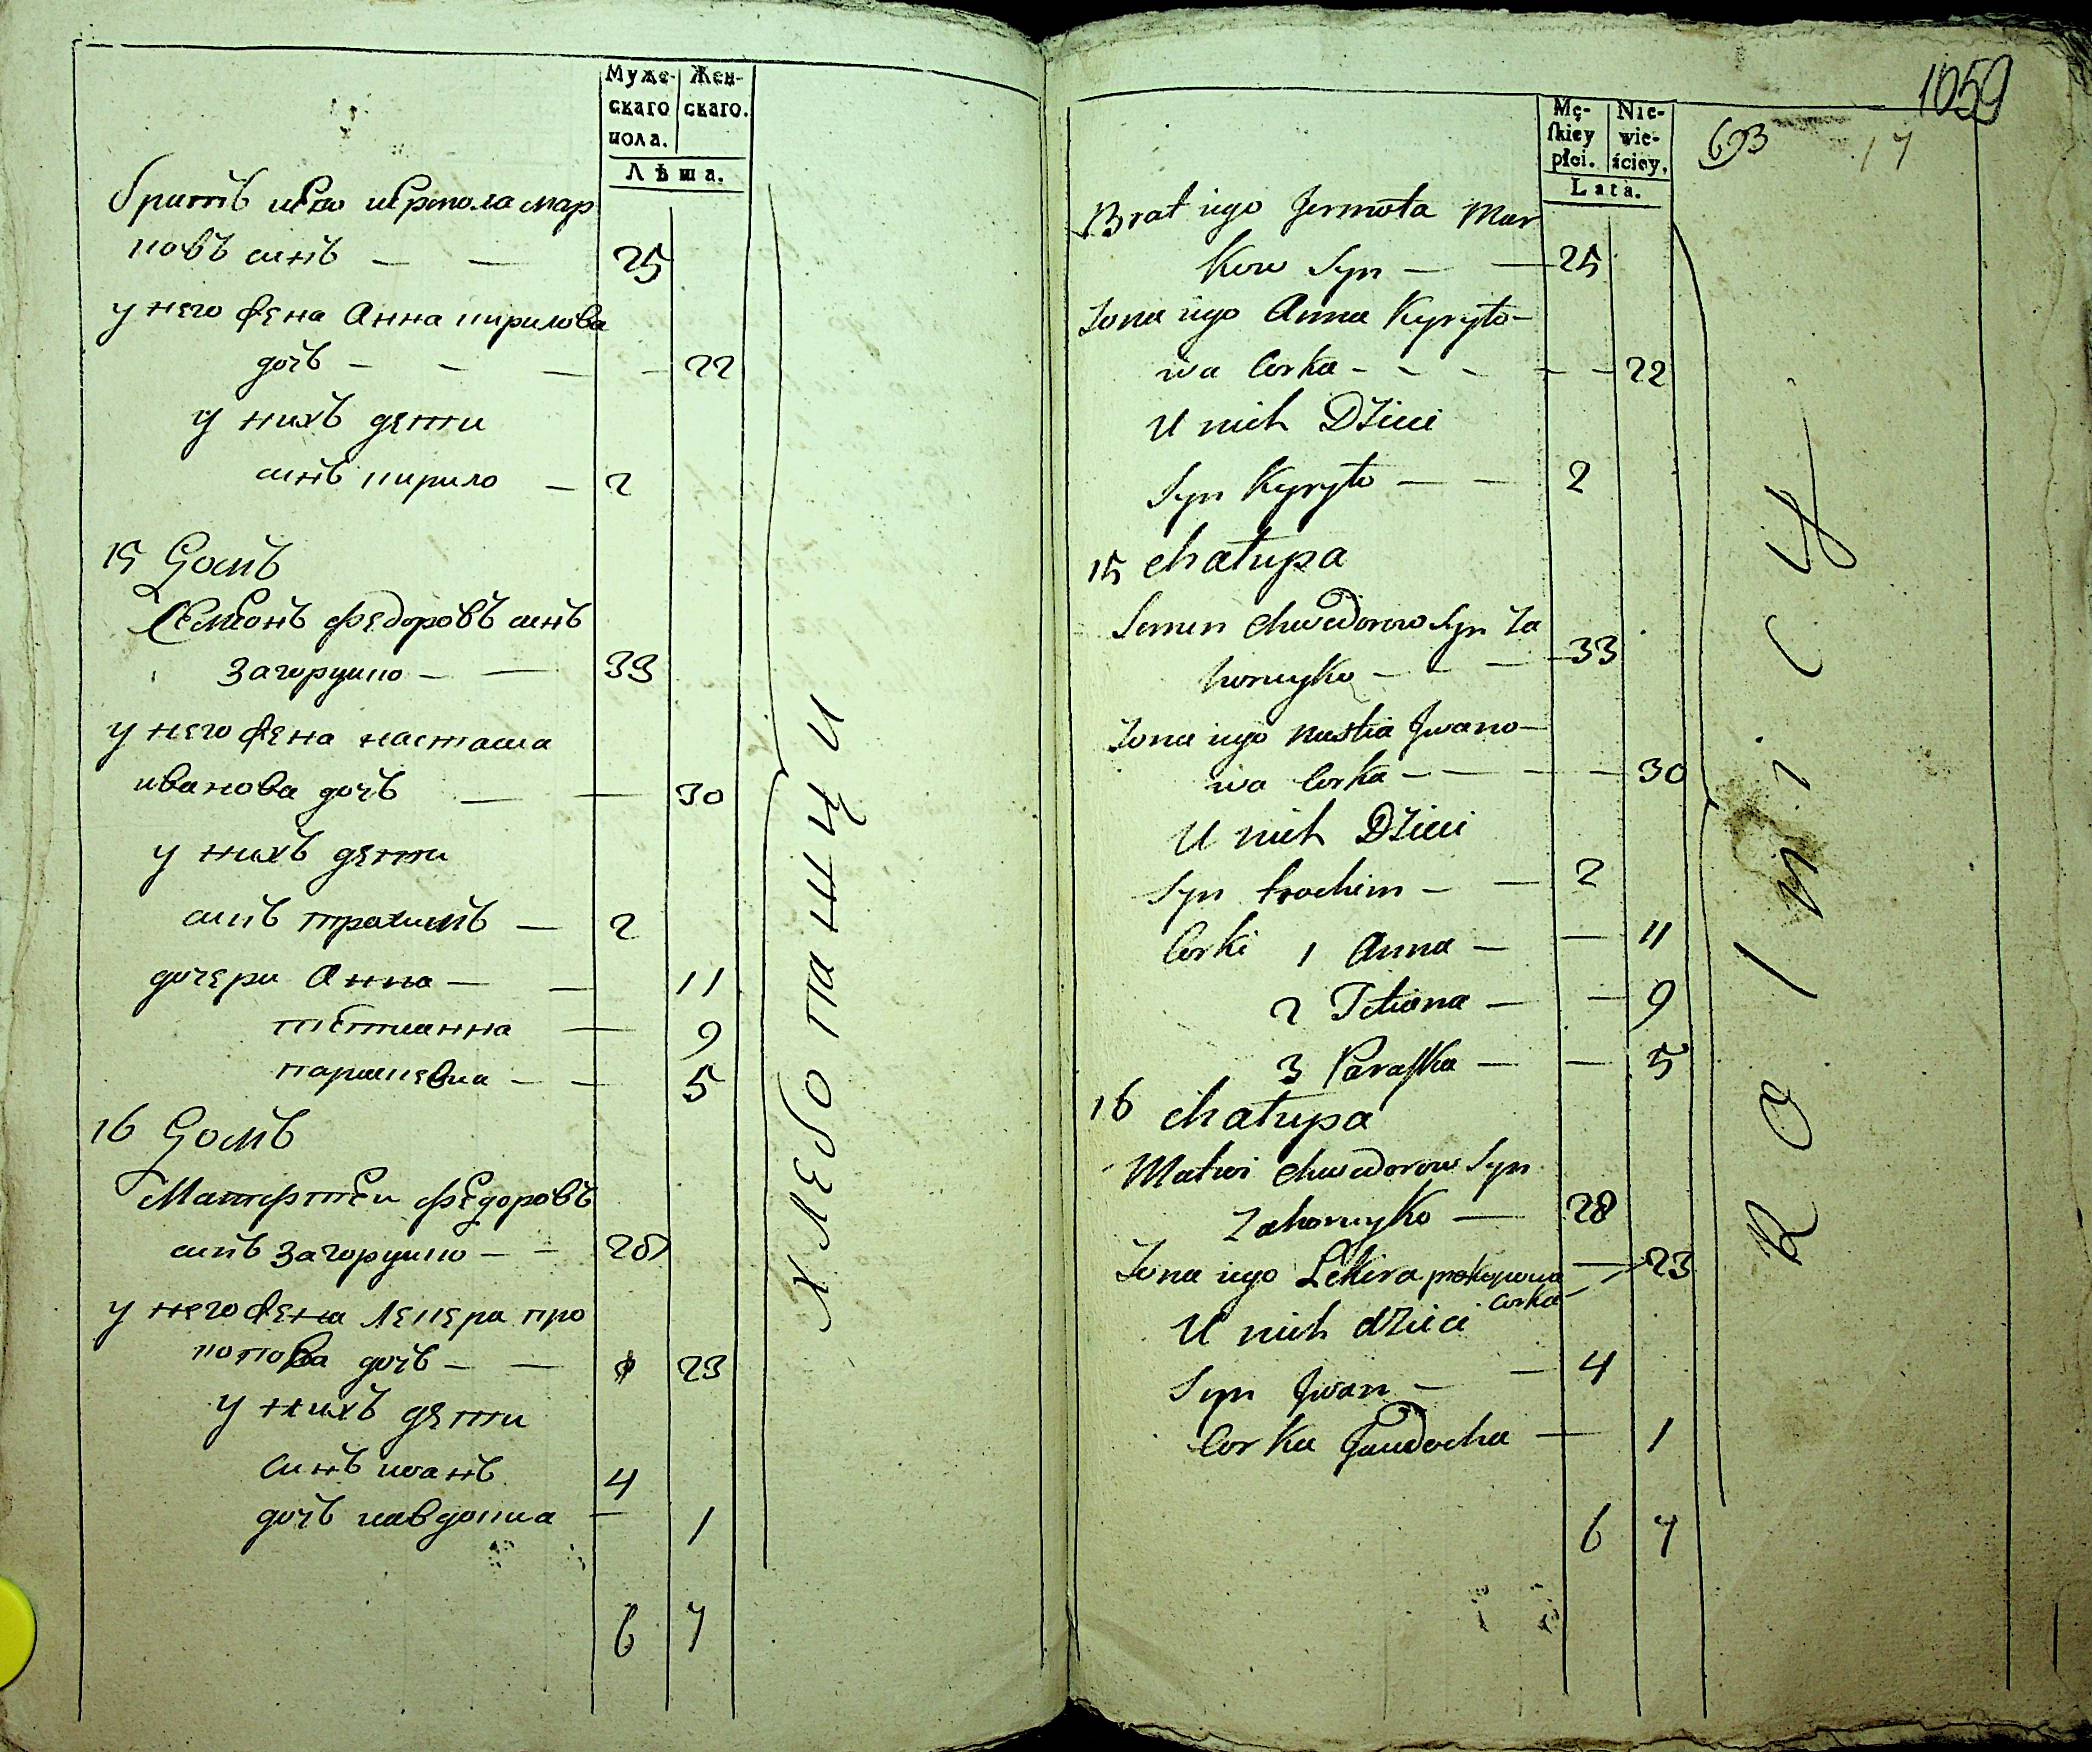 Муже-
скаго
пола.
Жен-
скаго.
Лѣта.
братъ иево иермола мар
ковъ синъ — — 25
у него жена Анна кирилова
дочъ — — — — 22
у нихъ дети
синъ кирило — 2
15 Домъ
Семионъ федоровъ синъ
Загоруико — — 33
у него жена настасиа
иванова дочъ — — 30
у нихъ дети
синъ трахимъ — 2
дочери Анна — — 11
тетианна — 9
парашевиа — — 5
16 Домъ
Матфтеи федоровъ
синъ Загоруико — — 28
у него жена Лекера про
копова дочъ — — 23
у нихъ дети
синъ иванъ 4
дочъ иавдокиа — 1
6 7
хлебопашци
1059
693
17
Mę-
ſkiey
płci.
Nie-
wie-
ściey.
Lata.
Brat iego Jermoła Mar
kow Syn — — 25
Żona iego Anna Kyryło-
wa Corka - - - - - 22
U nich Dżieci
Syn Kyryło — — 2
15 chałupa
Semen Chwedorow Syn Za
horuyko — - — 33
Żona iego Nastia Jwano-
wa Corka — — — — 30
U nich Dżieci
Syn trochim — — 2
Corki 1 Anna — — 11
2 Tetiana — — 9
3 Paraſka — — 5
16 chałupa
Matwi Chwedorow Syn
Zahoruyko — 28
Żona iego Lekiera prokopowa — 23
Corka
U nich dżieci
Syn Jwan — — 4
Corka Jawdocha — 1
6 7
Rolnicy